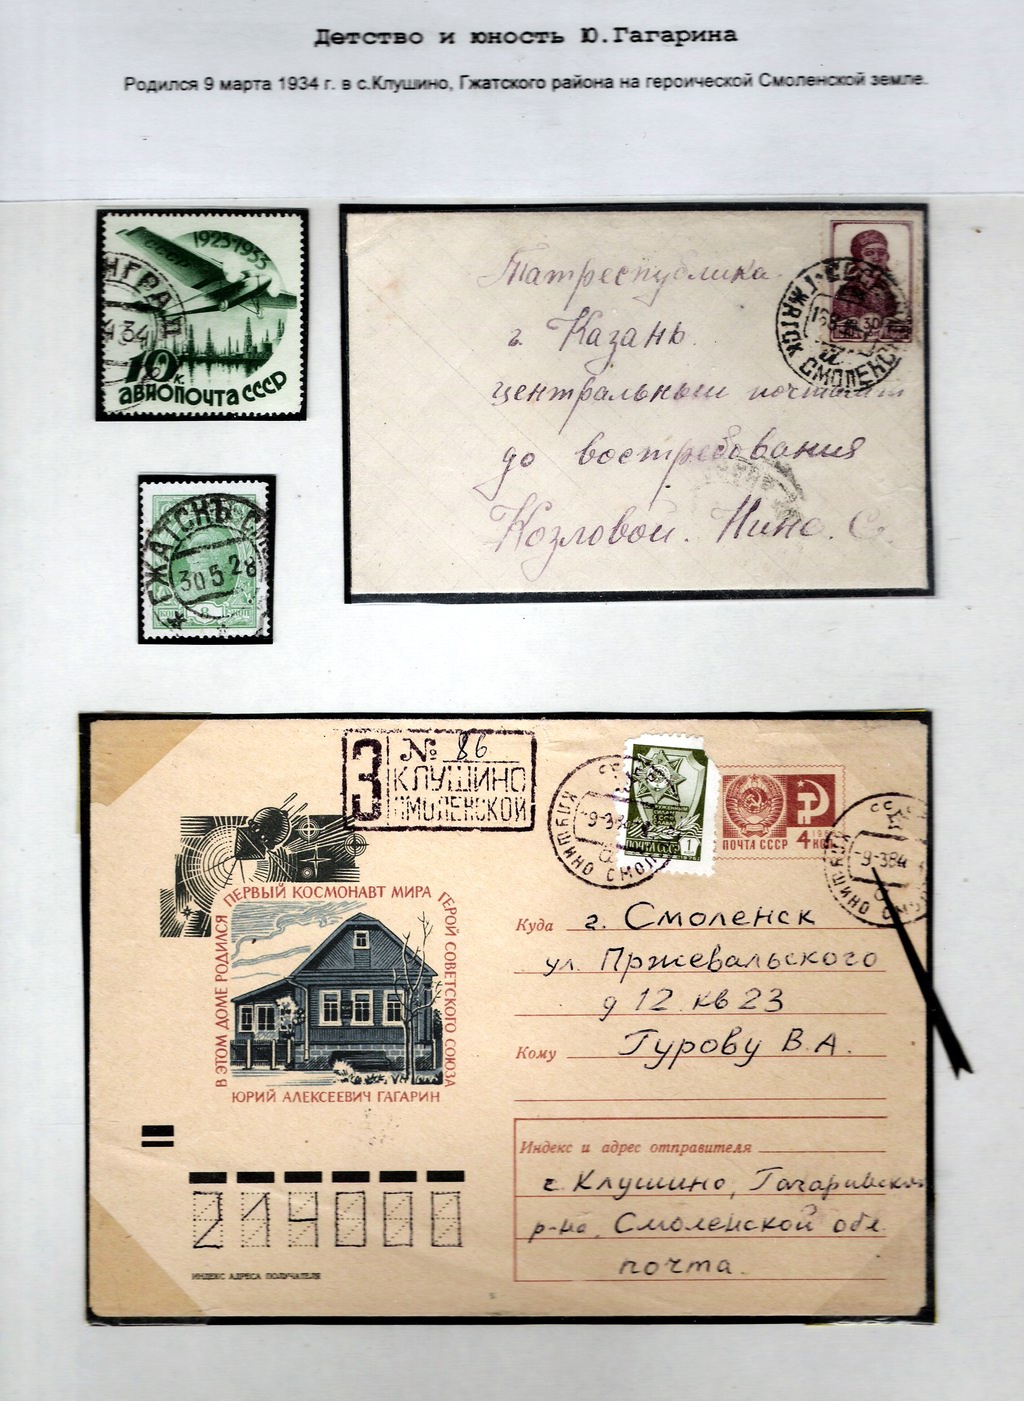 Детство и юность Ю.Гагарина
Родился 9 марта 1934 г. в с.Клушино, Гжатского района на героической Смоленской земле.
1923-1933
СССР
НГРАД
4 34
10 к.
АВИОПОЧТА СССР
Татреспублика
г. Казань
центральный почтамт
до востребования
Козловой. Нине. С.
ГЖАТСК СМОЛЕНСК
ГЖАТСКЪ СМ
30 5 28
8
З
№ 86
КЛУШИНО
СМОЛЕНСКОЙ
КЛУШИНО СМОЛ
-9-3 84
ПОЧТА СССР 1
ПОЧТА СССР 4 КОП
СССР
-9-3 84
ПЕРВЫЙ КОСМОНАВТ МИРА
ГЕРОЙ СОВЕТСКОГО СОЮЗА
В ЭТОМ ДОМЕ РОДИЛСЯ
ЮРИЙ АЛЕКСЕЕВИЧ ГАГАРИН
Куда г. Смоленск
ул. Пржевальского
д 12 кв 23
Кому Гурову В.А.
Индекс и адрес отправителя
с. Клушино, Гагаринского
р-на, Смоленской обл.
почта.
214000
ИНДЕКС АДРЕСА ПОЛУЧАТЕЛЯ